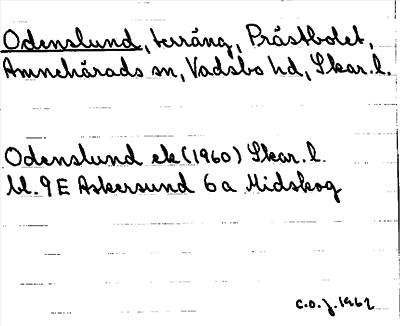 Odenslund, terräng, Prästbolet,
Amnehärads sn, Vadsbo hd, Skar.l.
Odenslund ek (1960) Skar.l.
bl. 9E Askersund 6a Midskog
C.O.J. 1962